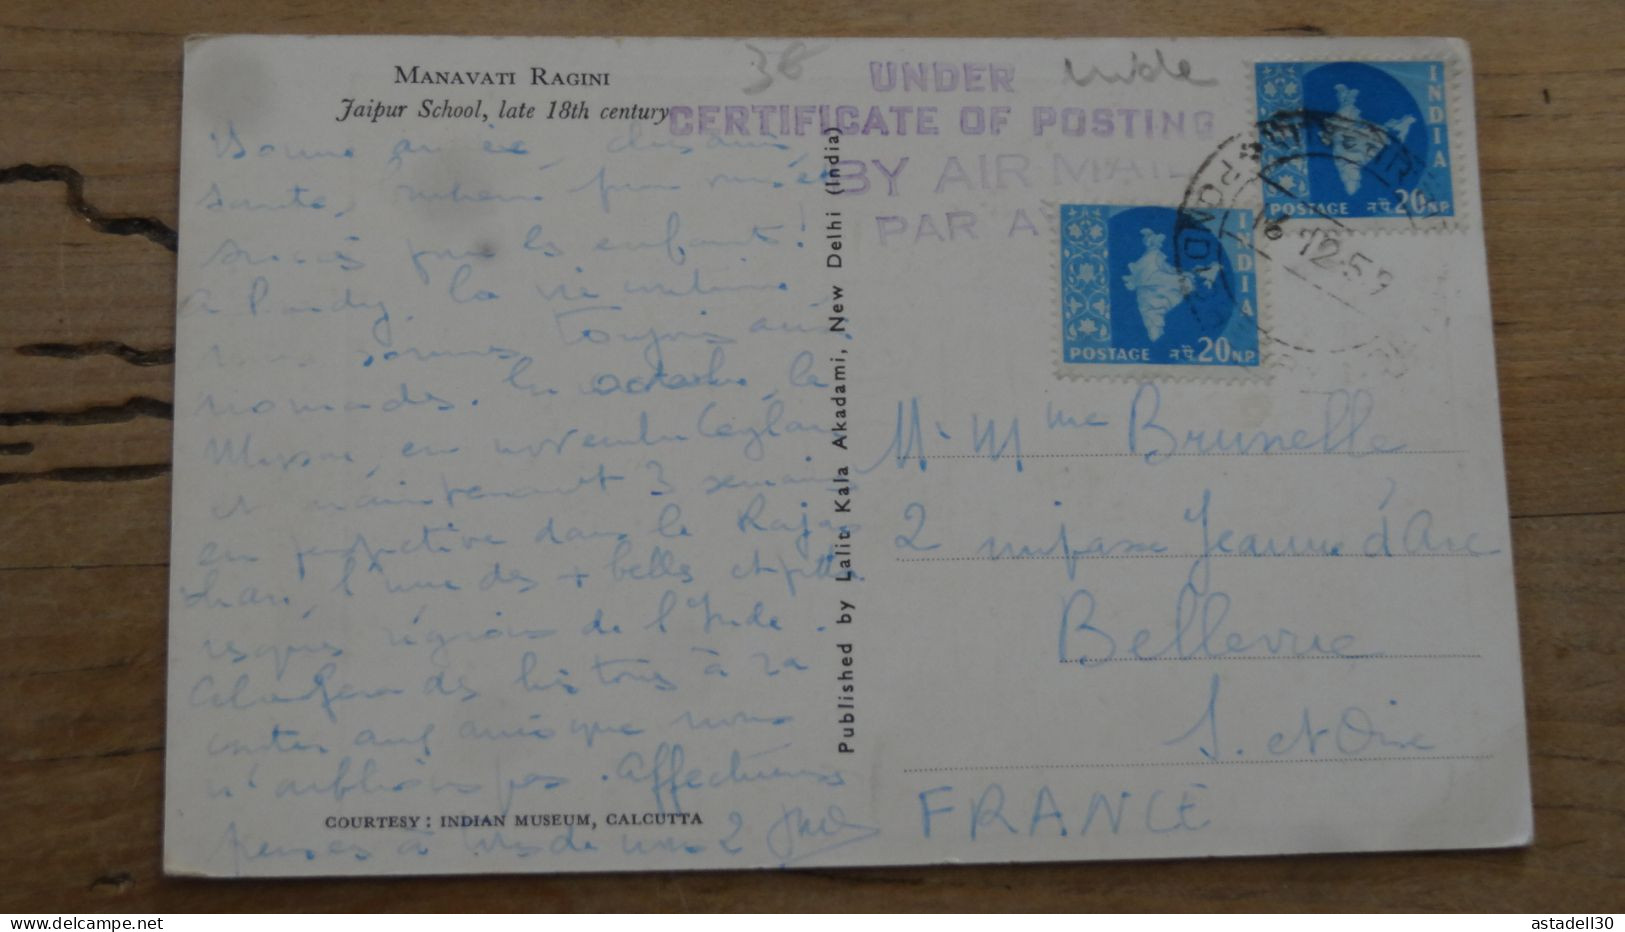 MANAVATI RAGINI
Jaipur School, late 18th century
36
UNDER
CERTIFICATE OF POSTING
BY AIR MAIL
PAR A
Inde
INDIA
POSTAGE नपै 20 N.P.
INDIA
POSTAGE नपै 20 N.P.
PONDI
12.59
Bonne année, chers amis,
santé, bonheur pour vous,
succès pour les enfants!
A Pondy, la vie continue
nous sommes toujours aussi
nomades. En octobre, le
Mysore, en novembre Ceylan
et maintenant 3 semaines
en perspective dans le Rajas
than, l'une des + belles et pitto
resques régions de l'Inde.
des histoires à ra
conter aux amis que nous
n'oublions pas. Affectueuses
pensées à tous de nous 2
COURTESY: INDIAN MUSEUM, CALCUTTA
Published by Lalit Kala Akadami, New Delhi (India)
M. Mme Brunelle
2 impasse Jeanne d'Arc
Bellevue
S. et Oise
FRANCE
astadell30